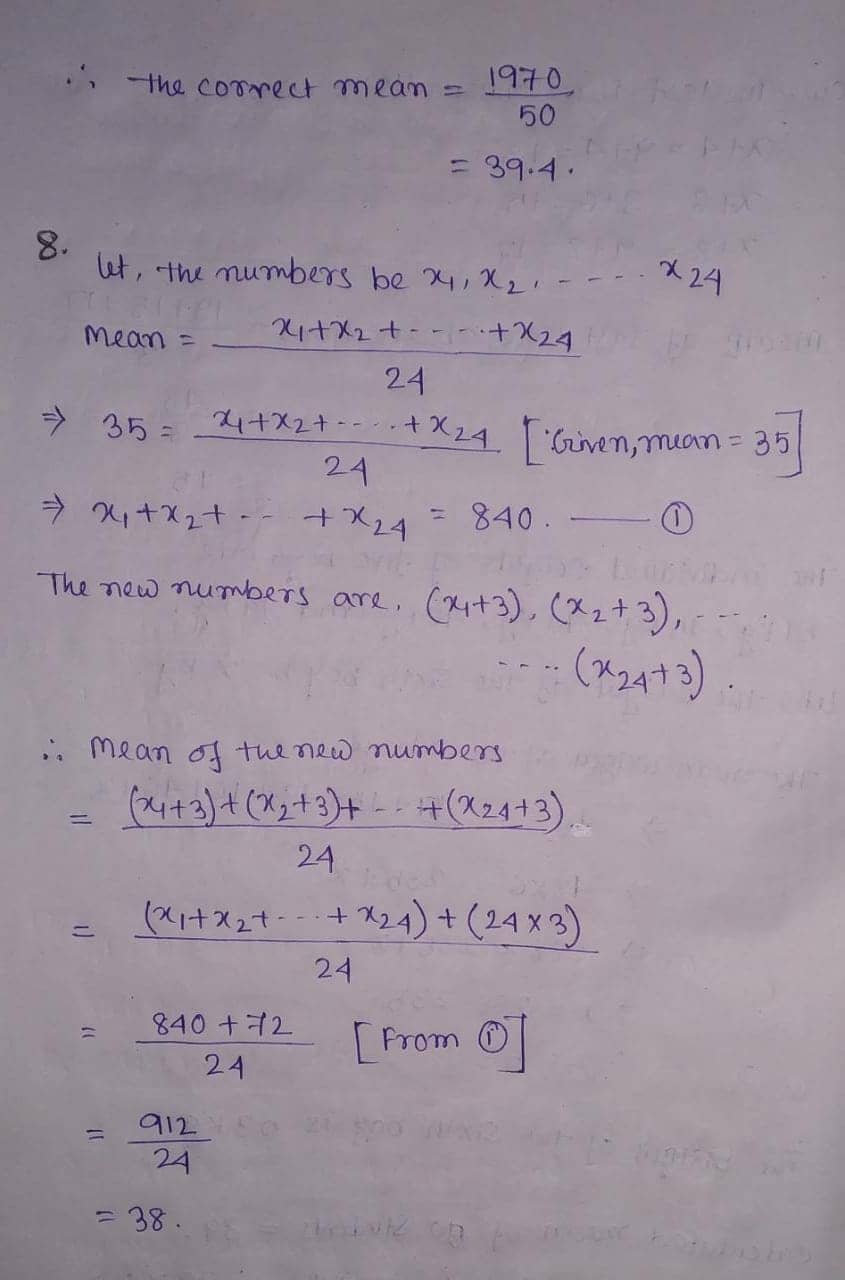 ∴ the correct mean = 1970/50
= 39.4.
8. let, the numbers be x₁, x₂, - - - - x₂₄
Mean = x₁+x₂+- - - -+x₂₄/24
⇒ 35 = x₁+x₂+- - - -+x₂₄/24 [Given, mean = 35]
⇒ x₁+x₂+- - +x₂₄ = 840. —— ①
The new numbers are, (x₁+3), (x₂+3), - - -
- - - - (x₂₄+3).
∴ Mean of the new numbers
= (x₁+3)+(x₂+3)+ - - +(x₂₄+3)/24
= (x₁+x₂+- - -+x₂₄)+(24×3)/24
= 840+72/24 [From ①]
= 912/24
= 38.